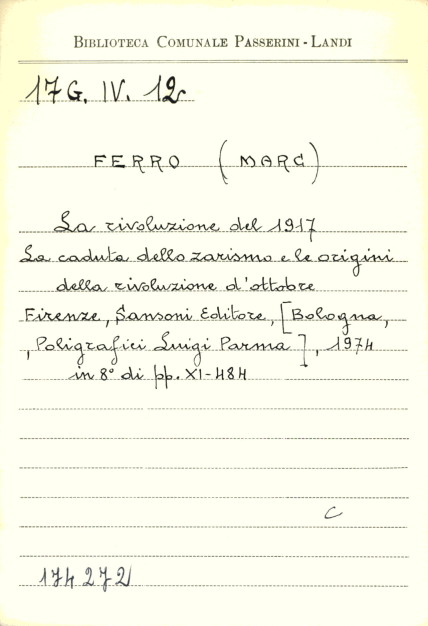 BIBLIOTECA COMUNALE PASSERINI-LANDI
17G. IV. 12
FERRO (MARC)
La rivoluzione del 1917
La caduta dello zarismo e le origini
della rivoluzione d'ottobre
Firenze, Sansoni Editore, [Bologna,
, Poligrafici Luigi Parma], 1974
in 8° di pp. XI-484
C
174272